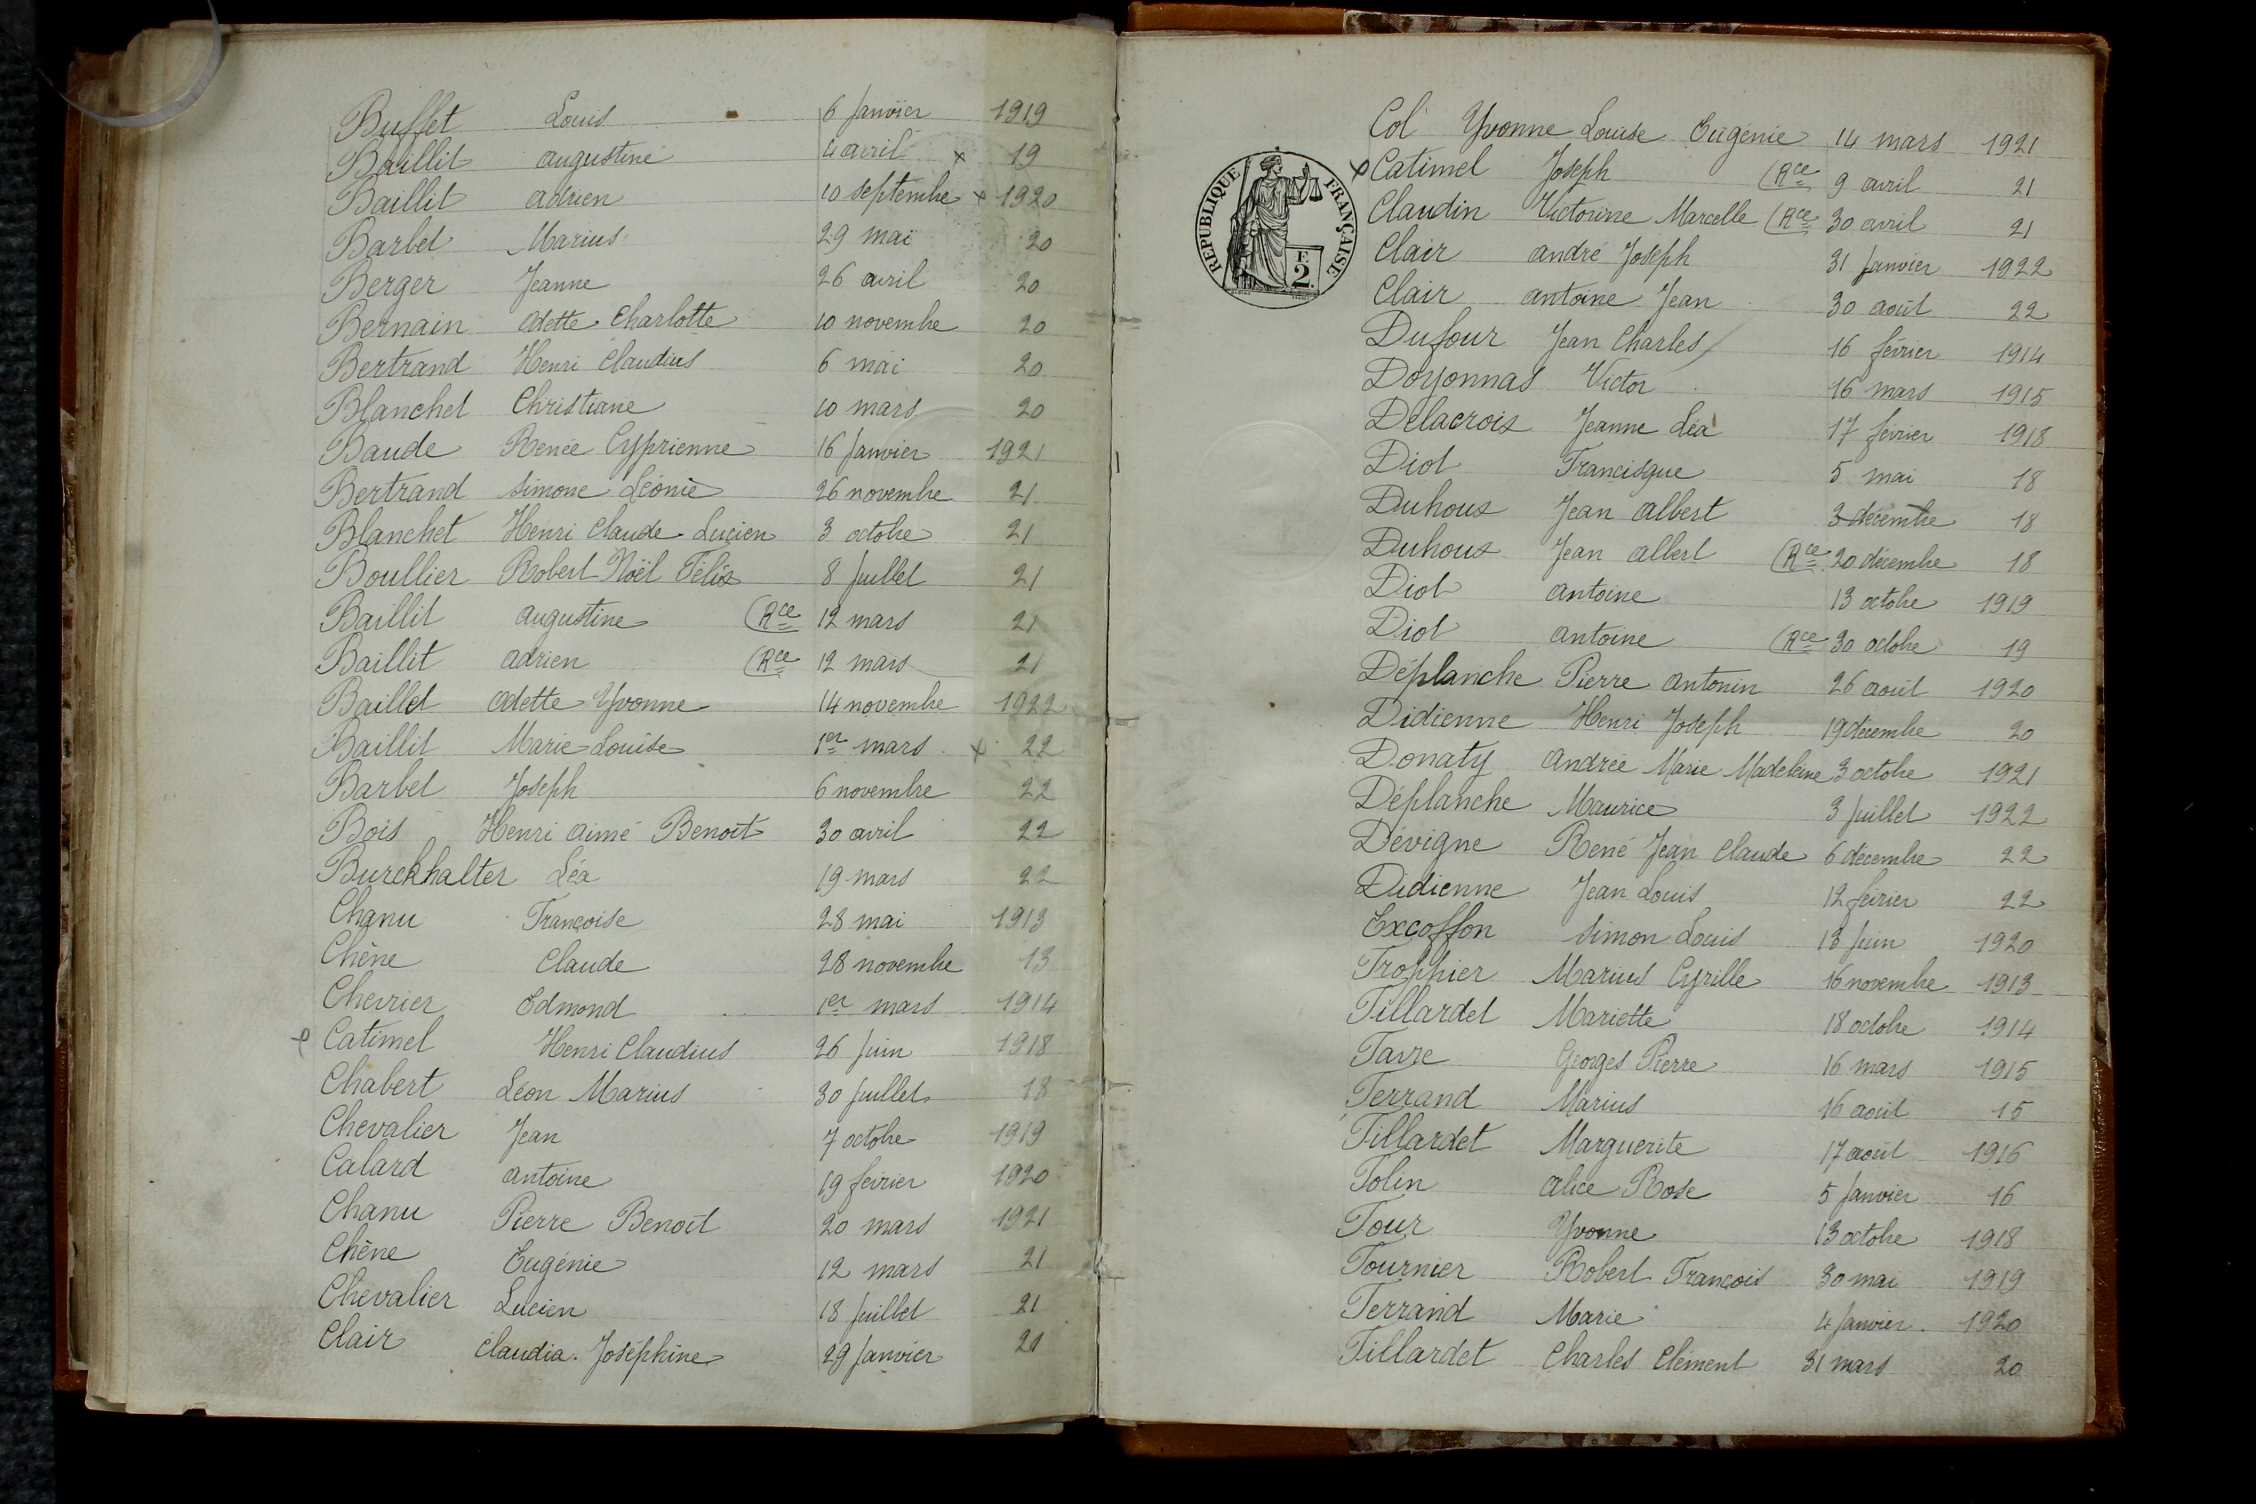 Buffet Louis 6 Janvier 1919
Baillit Augustine 4 avril x 19
Baillit Adrien 10 septembre x 1920
Barbet Marius 29 mai 20
Berger Jeanne 26 avril 20
Bernain Odette Charlotte 10 novembre 20
Bertrand Henri Claudius 6 mai 20
Blanchet Christiane 10 mars 20
Baude Renée Cyprienne 16 Janvier 1921
Bertrand Simone Léonie 26 novembre 21
Blanchet Henri Claude Lucien 3 octobre 21
Boullier Robert Noël Félix 8 Juillet 21
Baillit Augustine (Rce 12 mars 21
Baillit Adrien (Rce 12 mars 21
Baillet Odette Yvonne 14 novembre 1922
Baillit Marie Louise 1er mars x 22
Barbet Joseph 6 novembre 22
Bois Henri Aimé Benoît 30 avril 22
Burckhalter Léa 19 mars 22
Chanu Françoise 28 mai 1913
Chêne Claude 28 novembre 13
Chevrier Edmond 1er mars 1914
x Catimel Henri Claudius 26 Juin 1918
Chabert Léon Marius 30 Juillet 18
Chevalier Jean 7 octobre 1919
Calard Antoine 19 février 1920
Chanu Pierre Benoît 20 mars 1921
Chêne Eugénie 12 mars 21
Chevalier Lucien 18 Juillet 21
Clair Claudia Joséphine 29 Janvier 21
REPUBLIQUE FRANÇAISE
F.
2.
Col Yvonne Louise Eugénie 14 mars 1921
x Catimel Joseph (Rce 9 avril 21
Claudin Victorine Marcelle (Rce 30 avril 21
Clair André Joseph 31 Janvier 1922
Clair Antoine Jean 30 août 22
Dufour Jean Charles 16 février 1914
Doyonnas Victor 16 mars 1915
Delacroix Jeanne Léa 17 février 1918
Diot Francisque 5 mai 18
Duhoux Jean Albert 3 décembre 18
Duhoux Jean Albert (Rce 20 décembre 18
Diot Antoine 13 octobre 1919
Diot Antoine (Rce 30 octobre 19
Déplanche Pierre Antonin 26 août 1920
Didienne Henri Joseph 19 décembre 20
Donaty Andrée Marie Madeleine 3 octobre 1921
Déplanche Maurice 3 Juillet 1922
Dévigne René Jean Claude 6 décembre 22
Didienne Jean Louis 12 février 22
Excoffon Simon Louis 13 Juin 1920
Froppier Marius Cyrille 16 novembre 1913
Fillardet Mariette 18 octobre 1914
Favre Georges Pierre 16 mars 1915
Ferrand Marius 16 août 15
Fillardet Marguerite 17 août 1916
Folin Alice Rose 5 Janvier 16
Four Yvonne 13 octobre 1918
Fournier Robert François 30 mai 1919
Ferrand Marie 4 Janvier 1920
Fillardet Charles Clément 31 mars 20